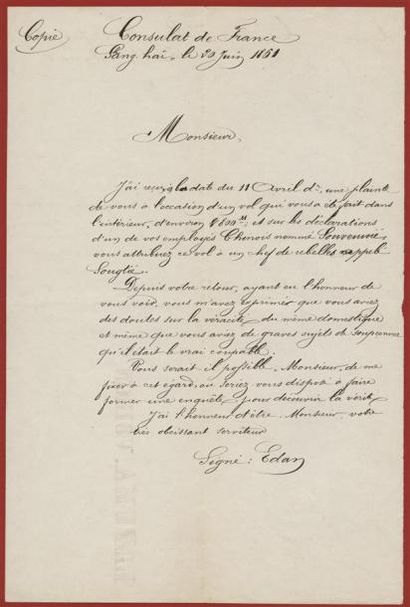 Copie
Consulat de France
Sang-hai, le 20 Juin 1861
Monsieur,
J'ai reçu à la date du 11 Avril dr, une plainte
de vous à l'occasion d'un vol qui vous a été fait dans
l'intérieur, d'environ et sur les déclarations
d'un de vos employés Chinois nommé
vous attribuez ce vol à un chef de rebelles appelé
Depuis votre retour, ayant eu l'honneur de
vous voir, vous m'avez exprimer que vous aviez
des doutes sur la véracité du même domestique
et même que vous aviez de graves sujets de soupconner
qu'il était le vrai coupable.
Vous serait il possible, Monsieur, de me
fixer à cet egard, ou seriez vous disposé à faire
former une enquête pour découvrir la vérité
J'ai l'honneur d'être, Monsieur, votre
très obeissant serviteur
Signé : Edan